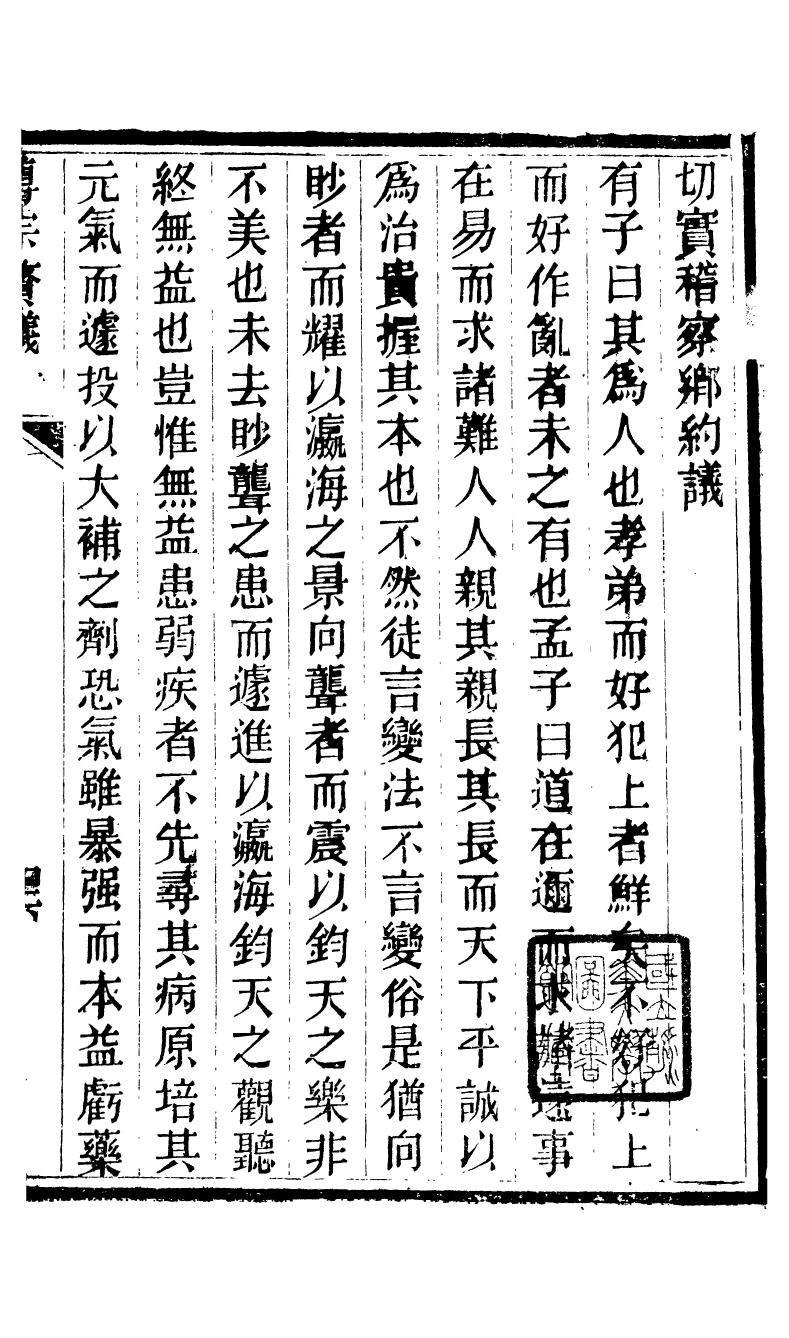 切實稽察鄉約議
有子曰其爲人也孝弟而好犯上者鮮矣不好犯上
而好作亂者未之有也孟子曰道在邇而求諸遠事
在易而求諸難人人親其親長其長而天下平誠以
爲治貴握其本也不然徒言變法不言變俗是猶向
眇者而耀以瀛海之景向聾者而震以鈞天之樂非
不美也未去眇聾之患而遽進以瀛海鈞天之觀聽
終無益也豈惟無益患弱疾者不先尋其病原培其
元氣而遽投以大補之劑恐氣雖暴强而本益虧藥